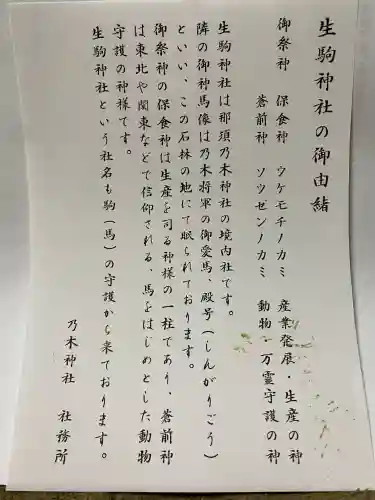 生駒神社の御由緒
御祭神　保食神　ウケモチノカミ　産業発展・生産の神
蒼前神　ソウゼンノカミ　動物・万霊守護の神
生駒神社は那須乃木神社の境内社です。
隣の御神馬像は乃木将軍の御愛馬、殿号（しんがりごう）
といい、この石林の地にて眠られております。
御祭神の保食神は生産を司る神様の一柱であり、蒼前神
は東北や関東などで信仰される、馬をはじめとした動物
守護の神様です。
生駒神社という社名も駒（馬）の守護から来ております。
乃木神社　社務所